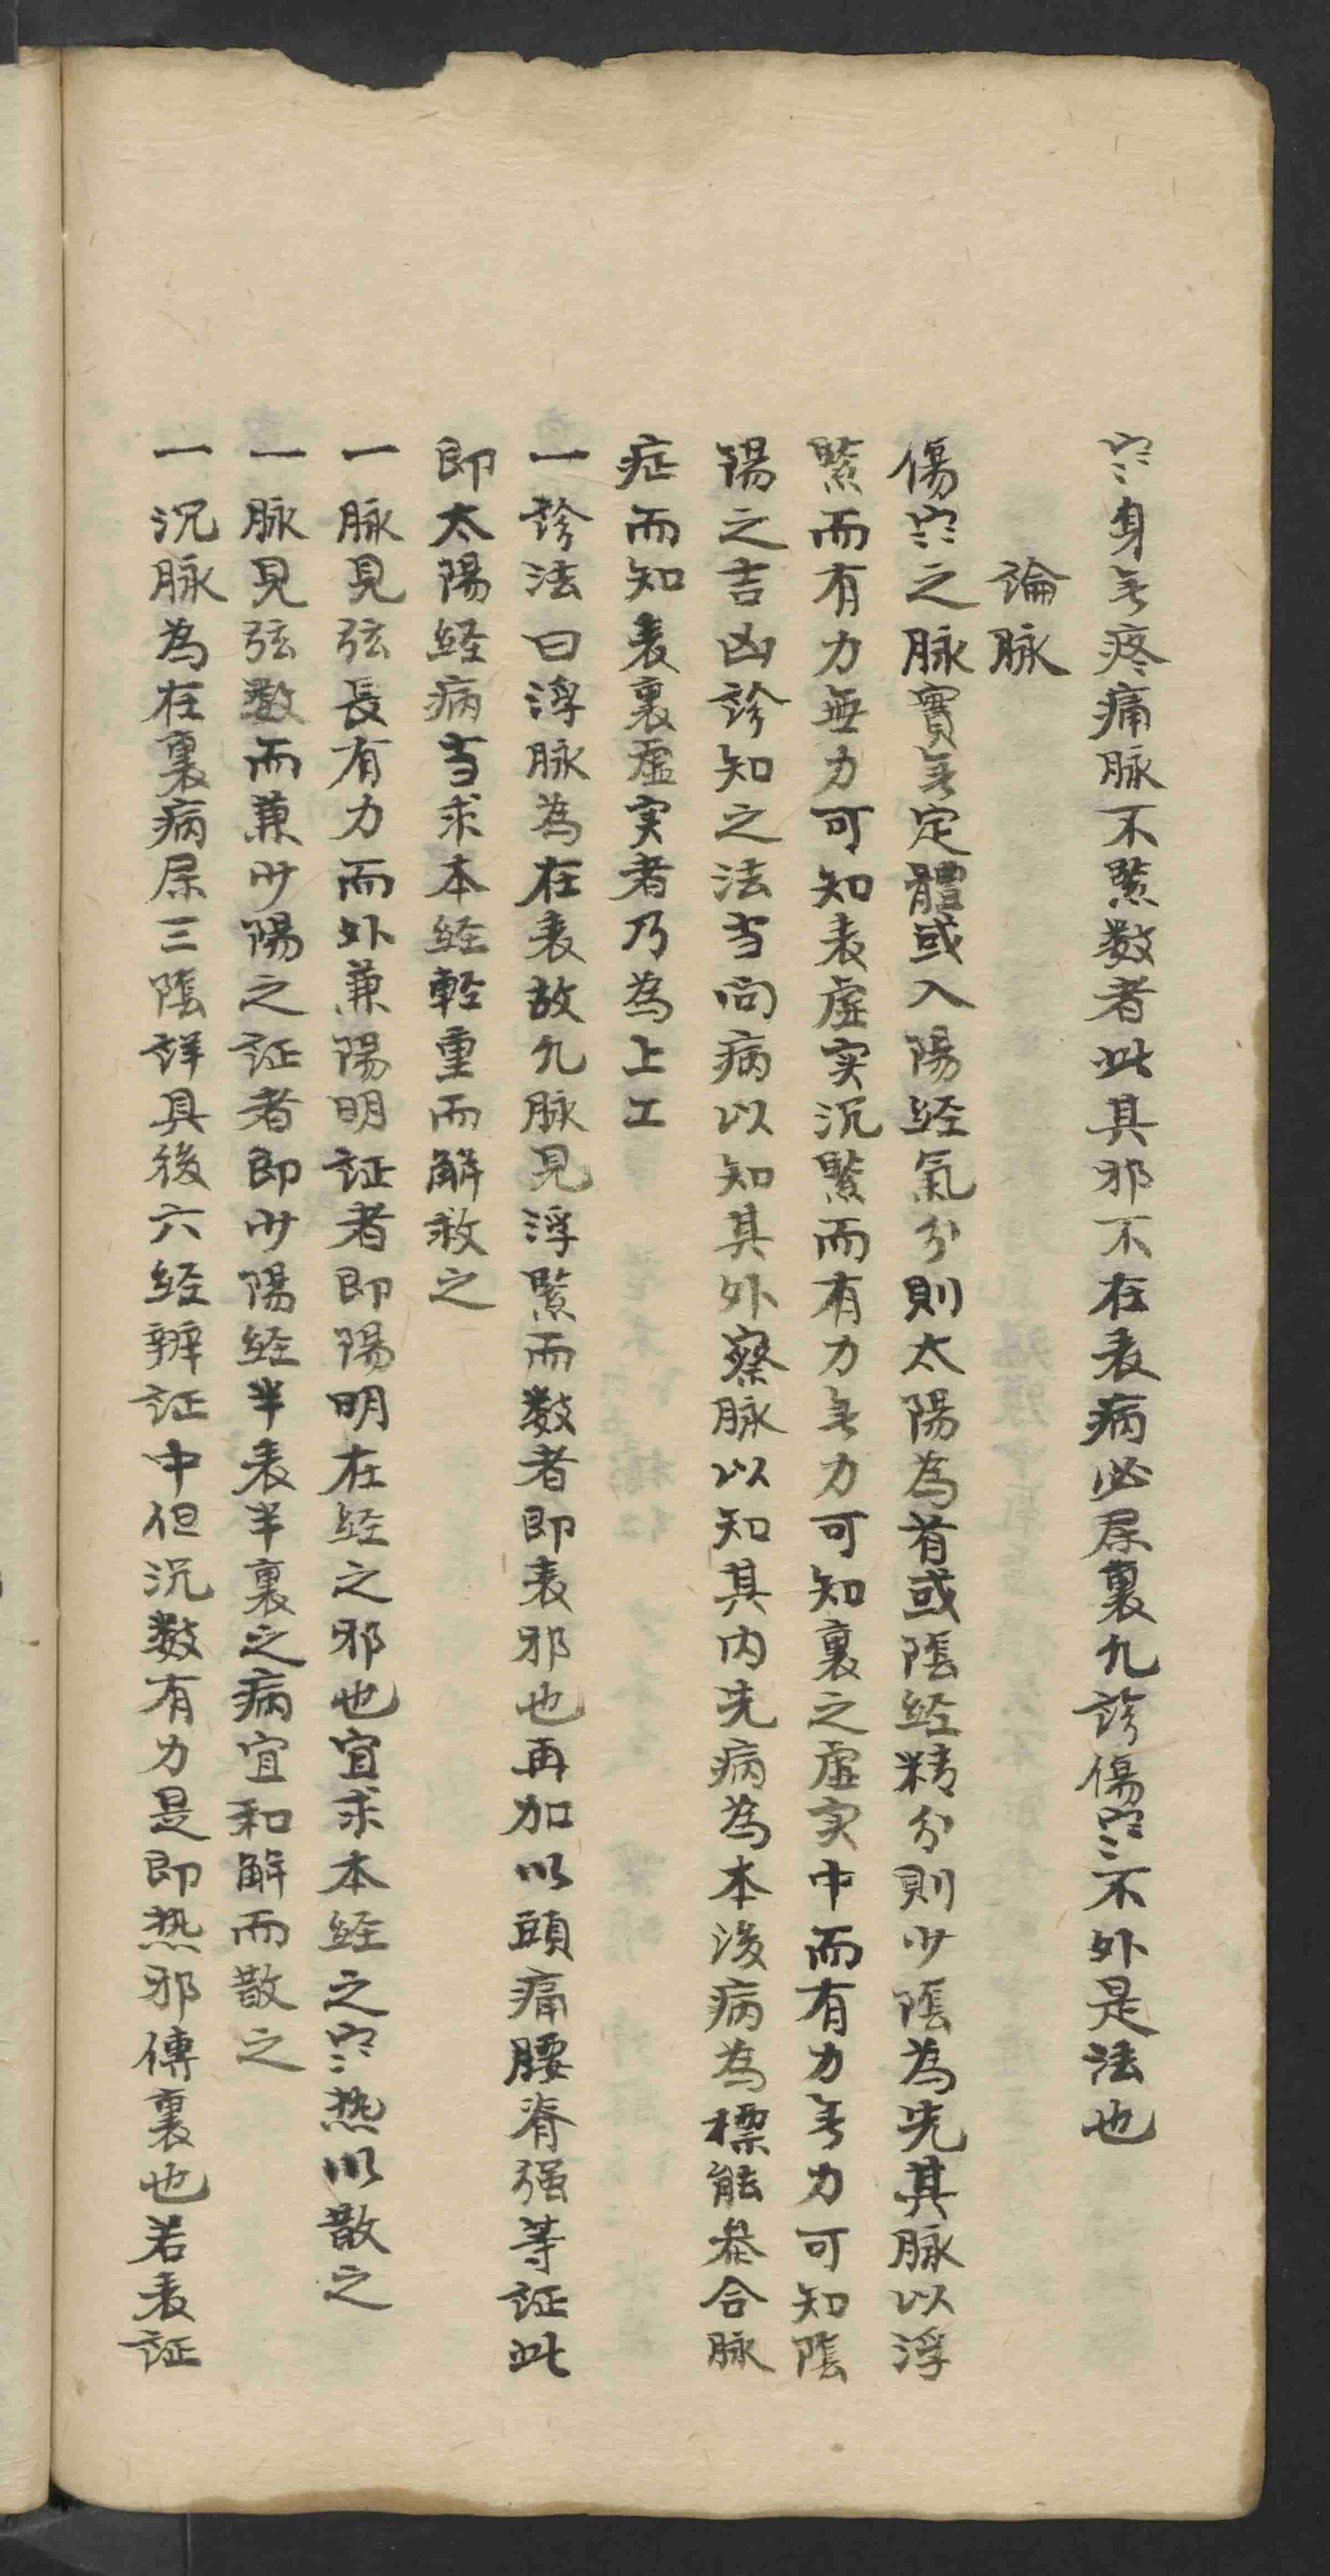 寒身无疼痛脉不緊数者此其邪不在表病必属裏凢診傷寒不外是法也
論脉
傷寒之脉實无定體或入陽经氣分則太陽為首或陰经精分則少陰為先其脉以浮
緊而有力無力可知表虚实沉緊而有力无力可知裏之虚实中而有力无力可知陰
陽之吉凶診知之法当问病以知其外察脉以知其内先病為本後病為標能叅合脉
症而知表裏虚实者乃為上工
一診法曰浮脉為在表故凢脉見浮緊而数者即表邪也再加以頭痛腰脊强等証此
即太陽経病当求本経軽重而解救之
一脉見弦長有力而外兼陽明証者即陽明在経之邪也宜求本経之寒热以散之
一脉見弦数而兼少陽之証者即少陽経半表半裏之病宜和解而散之
一沉脉為在裏病属三陰詳具後六経辨証中但沉数有力是即热邪傳裏也若表証